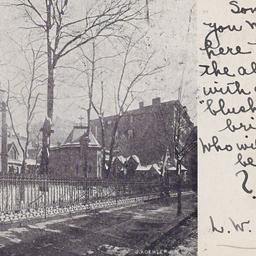 Som
you m
here -
the al
with a
"blush
bri
who wi
be
?
L.W.
J. KOEHLER